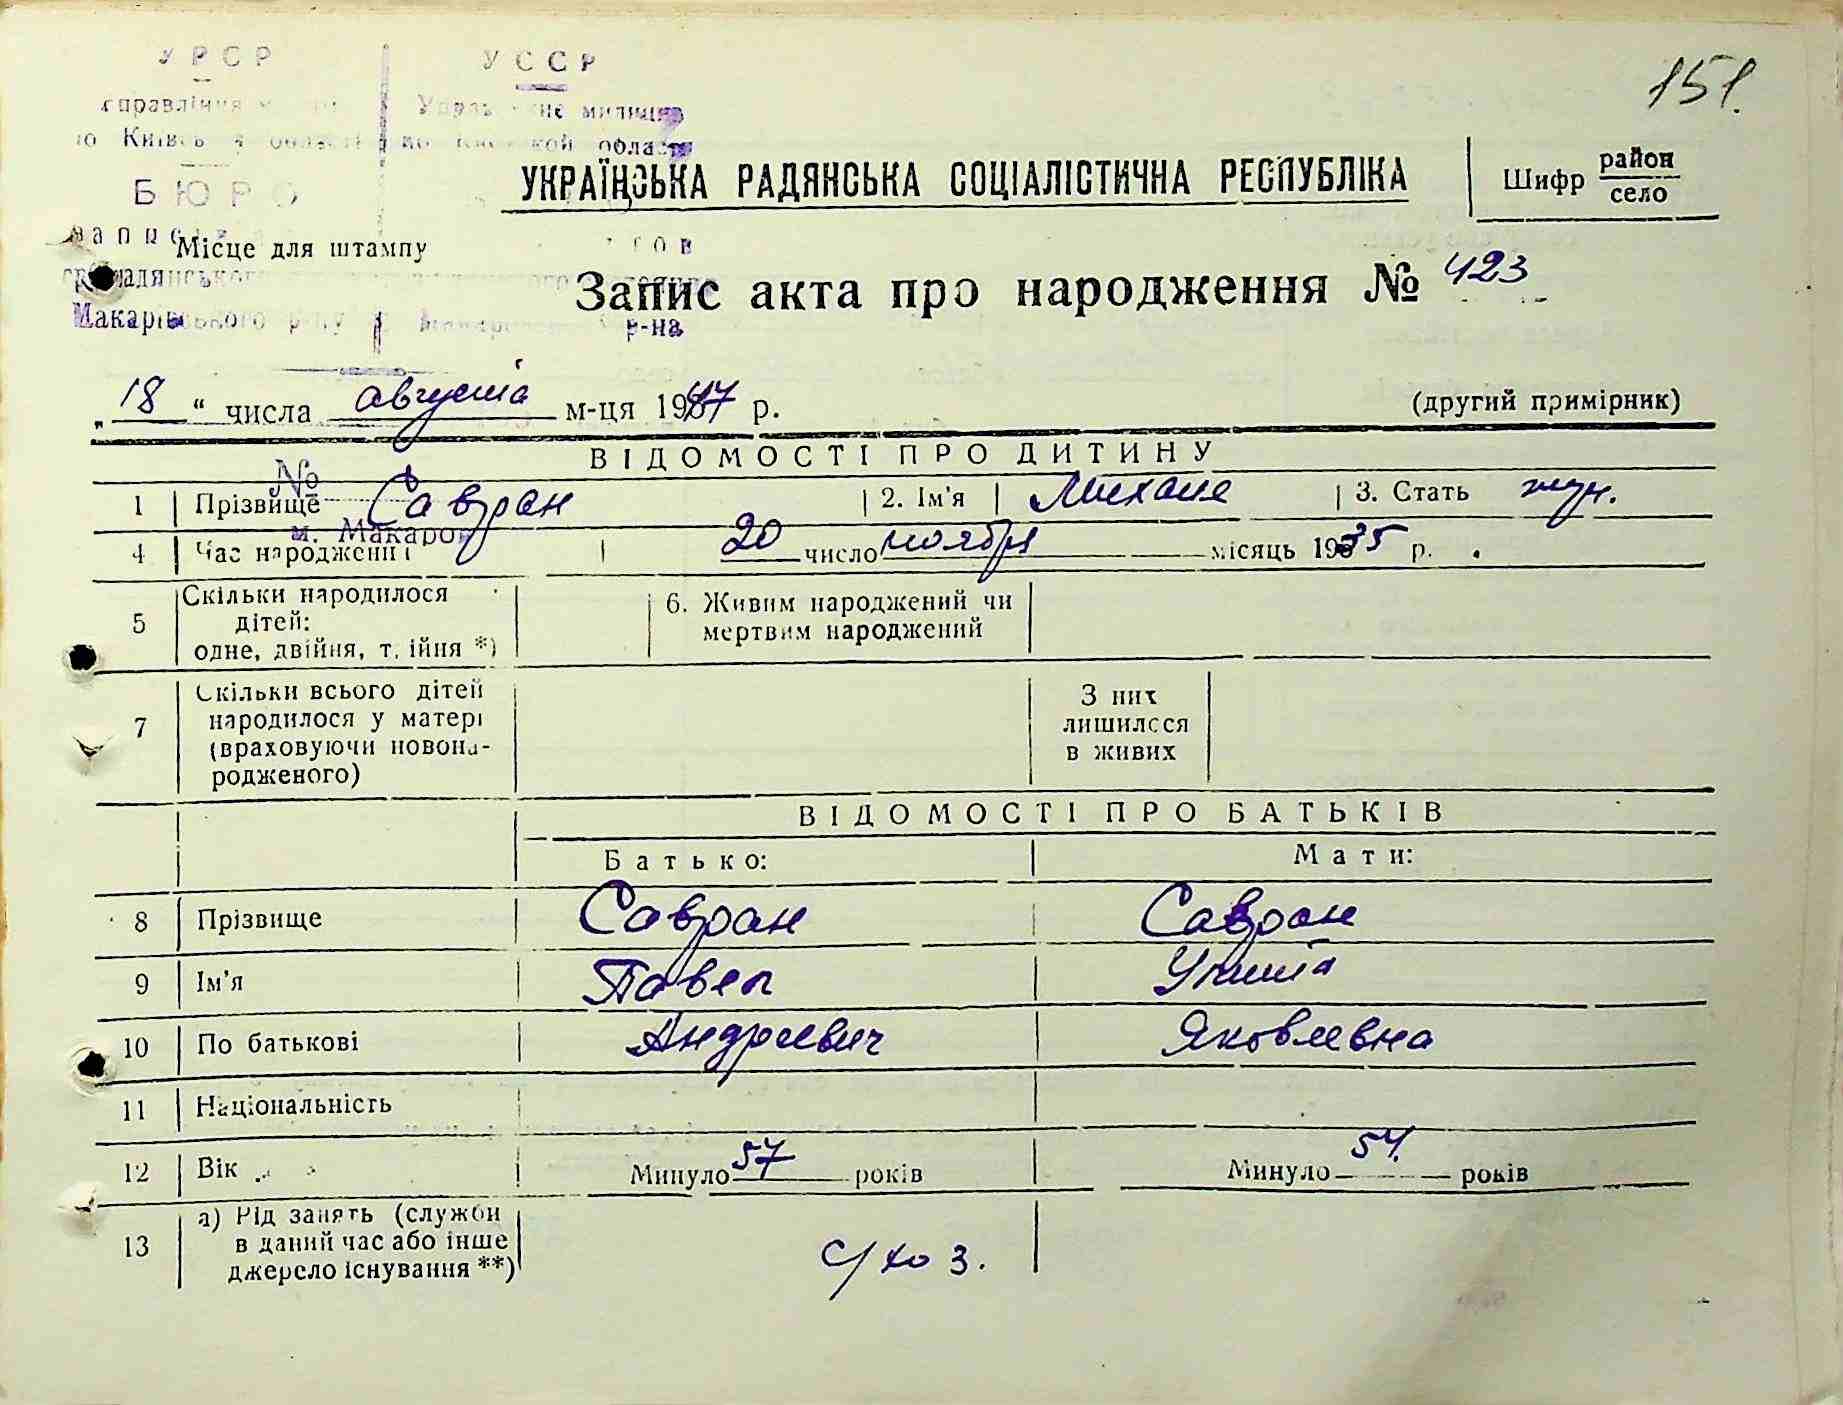 УРСР УССР
151.
Управление милиции
по Київській області по Киевской области
БЮРО
УКРАЇНСЬКА РАДЯНСЬКА СОЦІАЛІСТИЧНА РЕСПУБЛІКА
Шифр район
село
Місце для штампу
громадянського
Запис акта про народження № 423
Макарівського р-ну р-на
„18“ числа августа м-ця 1947 р. (другий примірник)
ВІДОМОСТІ ПРО ДИТИНУ
№
1 Прізвище Савран 2. Ім'я Михаил 3. Стать муж.
м. Макаров
4 Час народження 20 число ноября місяць 1935 р.
5 Скільки народилося дітей: одне, двійня, трійня *)
6. Живим народжений чи мертвим народжений
7 Скільки всього дітей народилося у матері (враховуючи новонародженого)
З них лишилося в живих
ВІДОМОСТІ ПРО БАТЬКІВ
Батько: Мати:
8 Прізвище Савран Савран
9 Ім'я Павел
10 По батькові Андреевич Яковлевна
11 Національність
12 Вік Минуло 57 років Минуло 54. років
13 а) Рід занять (служби в даний час або інше джерело існування **)
с/хоз.